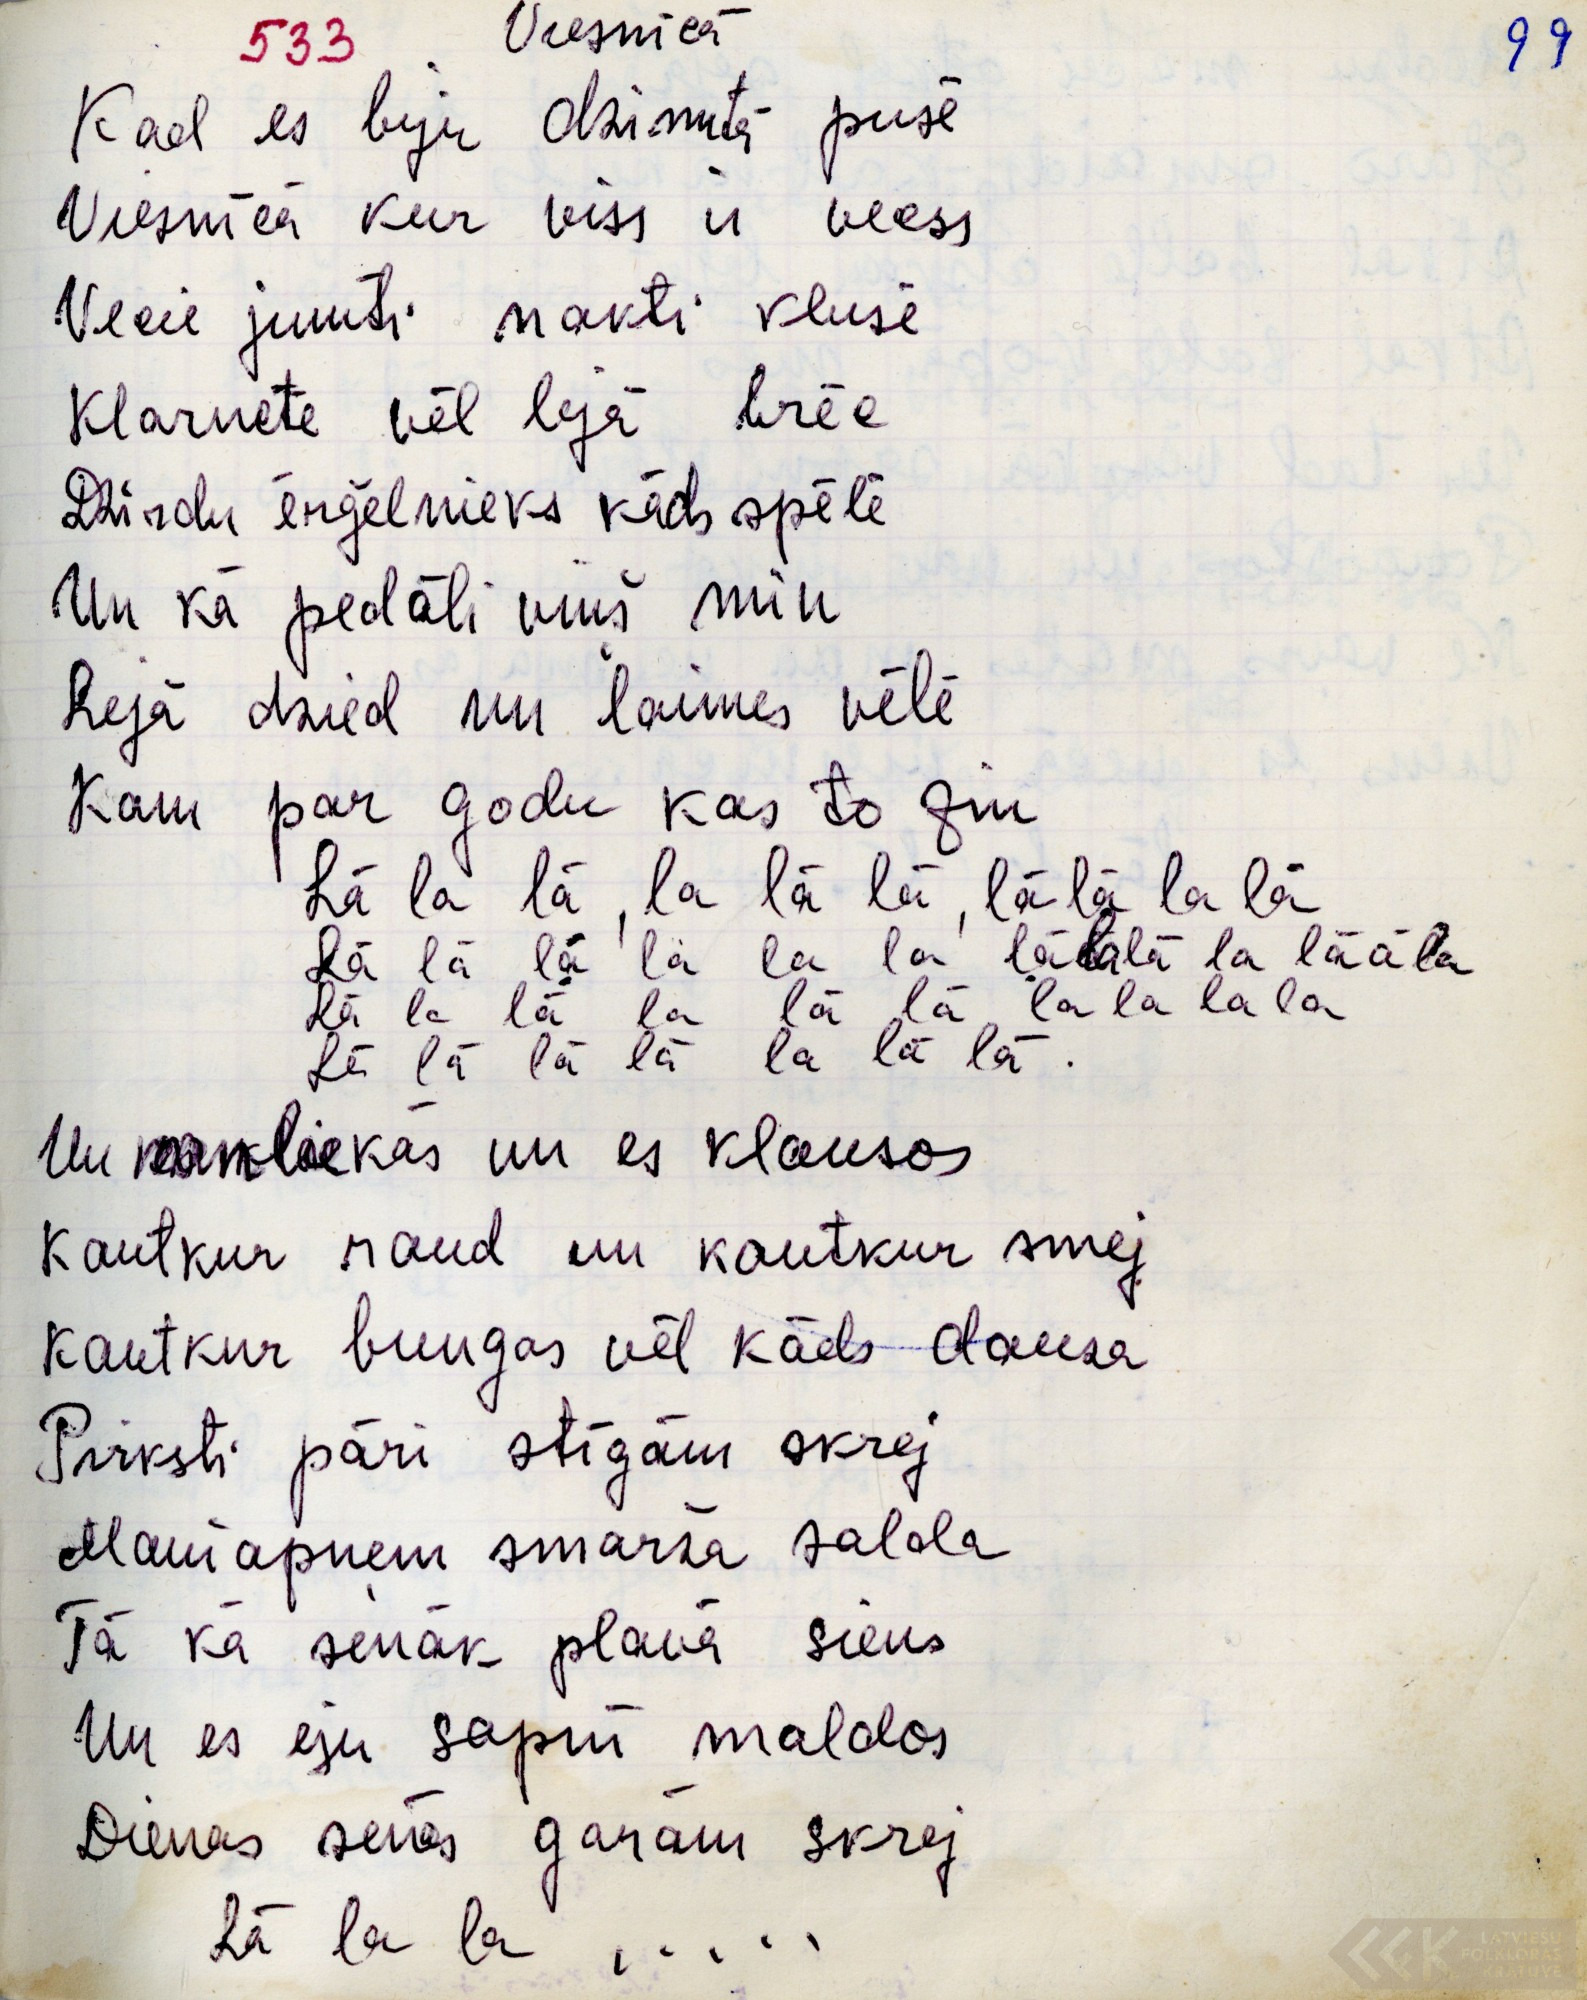 533 Viesnīcā 99
Kad es biju dzimtā pusē
Viesnīcā kur viss ir vecss
Vecie jumti nakti klusē
Klarnete vēl lejā brēc
Dzirdu ērģelnieks kāds spēlē
Un kā pedāli viņš min
Lejā dzied un laimes vēlē
Kam par godu kas to zin
Lā la lā, la lā lā, lā lā la lā
Lā lā lā la la la lā la lā la lāāla
Lā la lā la lā lā la la la la
Lā lā lā lā la lā lā.
Un man liekās un es klausos
Kautkur raud un kautkur smej
Kautkur bungas vēl kāds dauza
Pirksti pāri stīgām skrej
Mani apņem smarža salda
Tā kā senāk pļavā siens
Un es eju sapnī maldos
Dienas senās garām skrej
Lā la la .....
LATVIEŠU
FOLKLORAS
KRĀTUVE